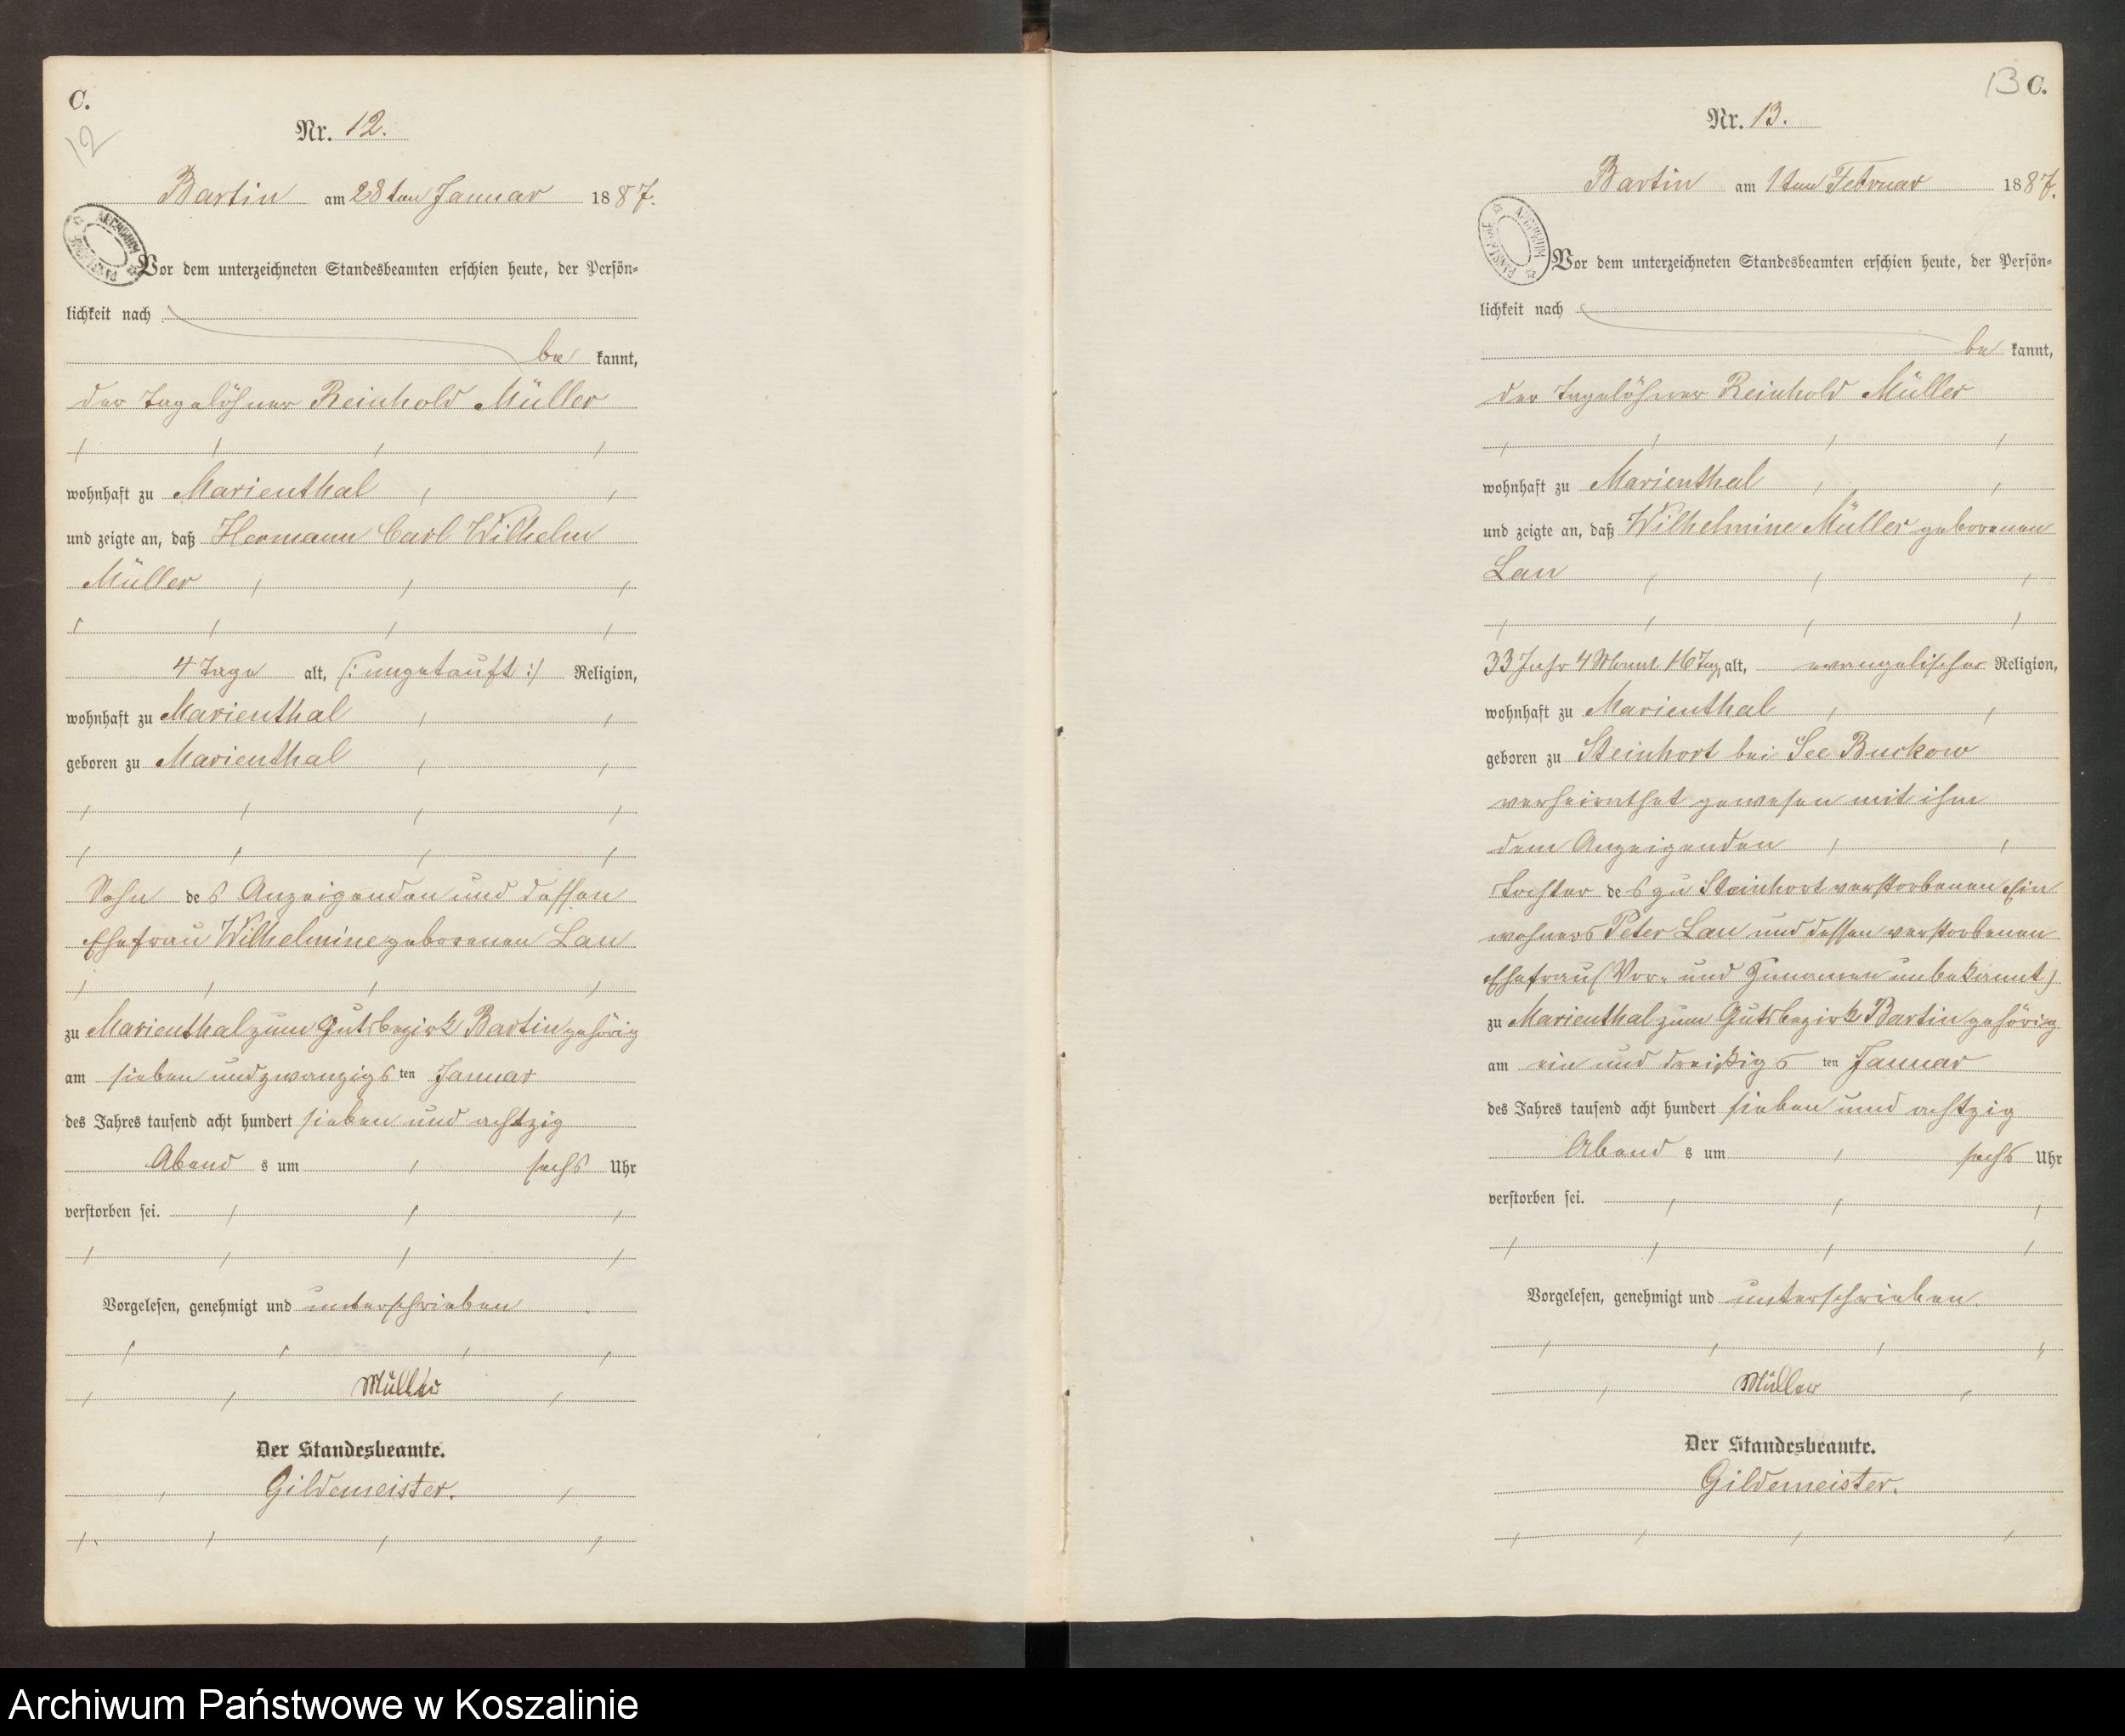 C.
12
Nr. 12.
Bartin am 28ten Januar 1887.
ARCHIWUM PAŃSTWOWE
Vor dem unterzeichneten Standesbeamten erschien heute, der Persön=
lichkeit nach
be kannt,
der Tagelöhner Reinhold Müller
wohnhaft zu Marienthal
und zeigte an, daß Hermann Carl Wilhelm
Müller
4 Tage alt, (: ungetauft :) Religion,
wohnhaft zu Marienthal
geboren zu Marienthal
Sohn des Anzeigenden und dessen
Ehefrau Wilhelmine geborenen Lau
zu Marienthal zum Gutsbezirk Bartin gehörig
am sieben und zwanzigsten Januar
des Jahres tausend acht hundert sieben und achtzig
Abends um sechs Uhr
verstorben sei.
Vorgelesen, genehmigt und unterschrieben
Müller
Der Standesbeamte.
Gildemeister.
13 C.
Nr. 13.
Bartin am 1ten Februar 1887.
ARCHIWUM PAŃSTWOWE
Vor dem unterzeichneten Standesbeamten erschien heute, der Persön=
lichkeit nach
be kannt,
der Tagelöhner Reinhold Müller
wohnhaft zu Marienthal
und zeigte an, daß Wilhelmine Müller geborenen
Lau
33 Jahr 4 Monat 16 Tag alt, evangelischer Religion,
wohnhaft zu Marienthal
geboren zu Steinhort bei See Buckow
verheirathet gewesen mit ihm
dem Anzeigenden
Tochter des zu Steinhort verstorbenen Ein
wohners Peter Lau und dessen verstorbenen
Ehefrau (Vor- und Zunamen unbekannt)
zu Marienthal zum Gutsbezirk Bartin gehörig
am ein und dreißigsten Januar
des Jahres tausend acht hundert sieben und achtzig
Abends um sechs Uhr
verstorben sei.
Vorgelesen, genehmigt und unterschrieben.
Müller
Der Standesbeamte.
Gildemeister.
Archiwum Państwowe w Koszalinie